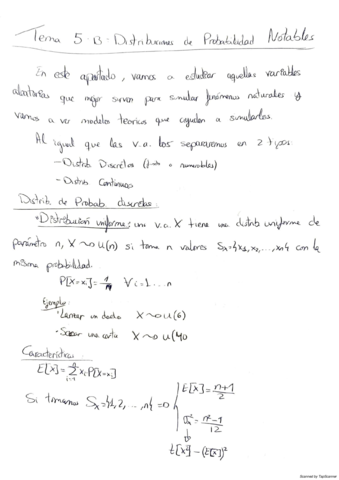 Tema 5-B-Distribuciones de Probabilidad Notables
En este apartado, vamos a estudiar aquellas variables
aleatorias que mejor sirven para simular fenómenos naturales y
vamos a ver modelos teóricos que ayuden a simularlos.
Al igual que las v.a. los separaremos en 2 tipos
- Distrib Discretas (finito o numerables)
- Distrib Continuas
Distrib de Probab discretas:
• Distribución uniforme: una v.a. X tiene una distrib uniforme de
parámetro n, X ~> U(n) si toma n valores Sx={x1,x2,...,xn} con la
misma probabilidad.
P[X=xi]=1/n ∀i=1...n
Ejemplos:
• Lanzar un dado X ~> U(6)
• Sacar una carta X ~> U(40
Características:
E[X]=∑xiP[X=xi]
Si tomamos Sx={1,2,...,n} => E[X]=n+1/2
σx²=n²-1/12
E[x²]-(E[X])²
Scanned by TapScanner